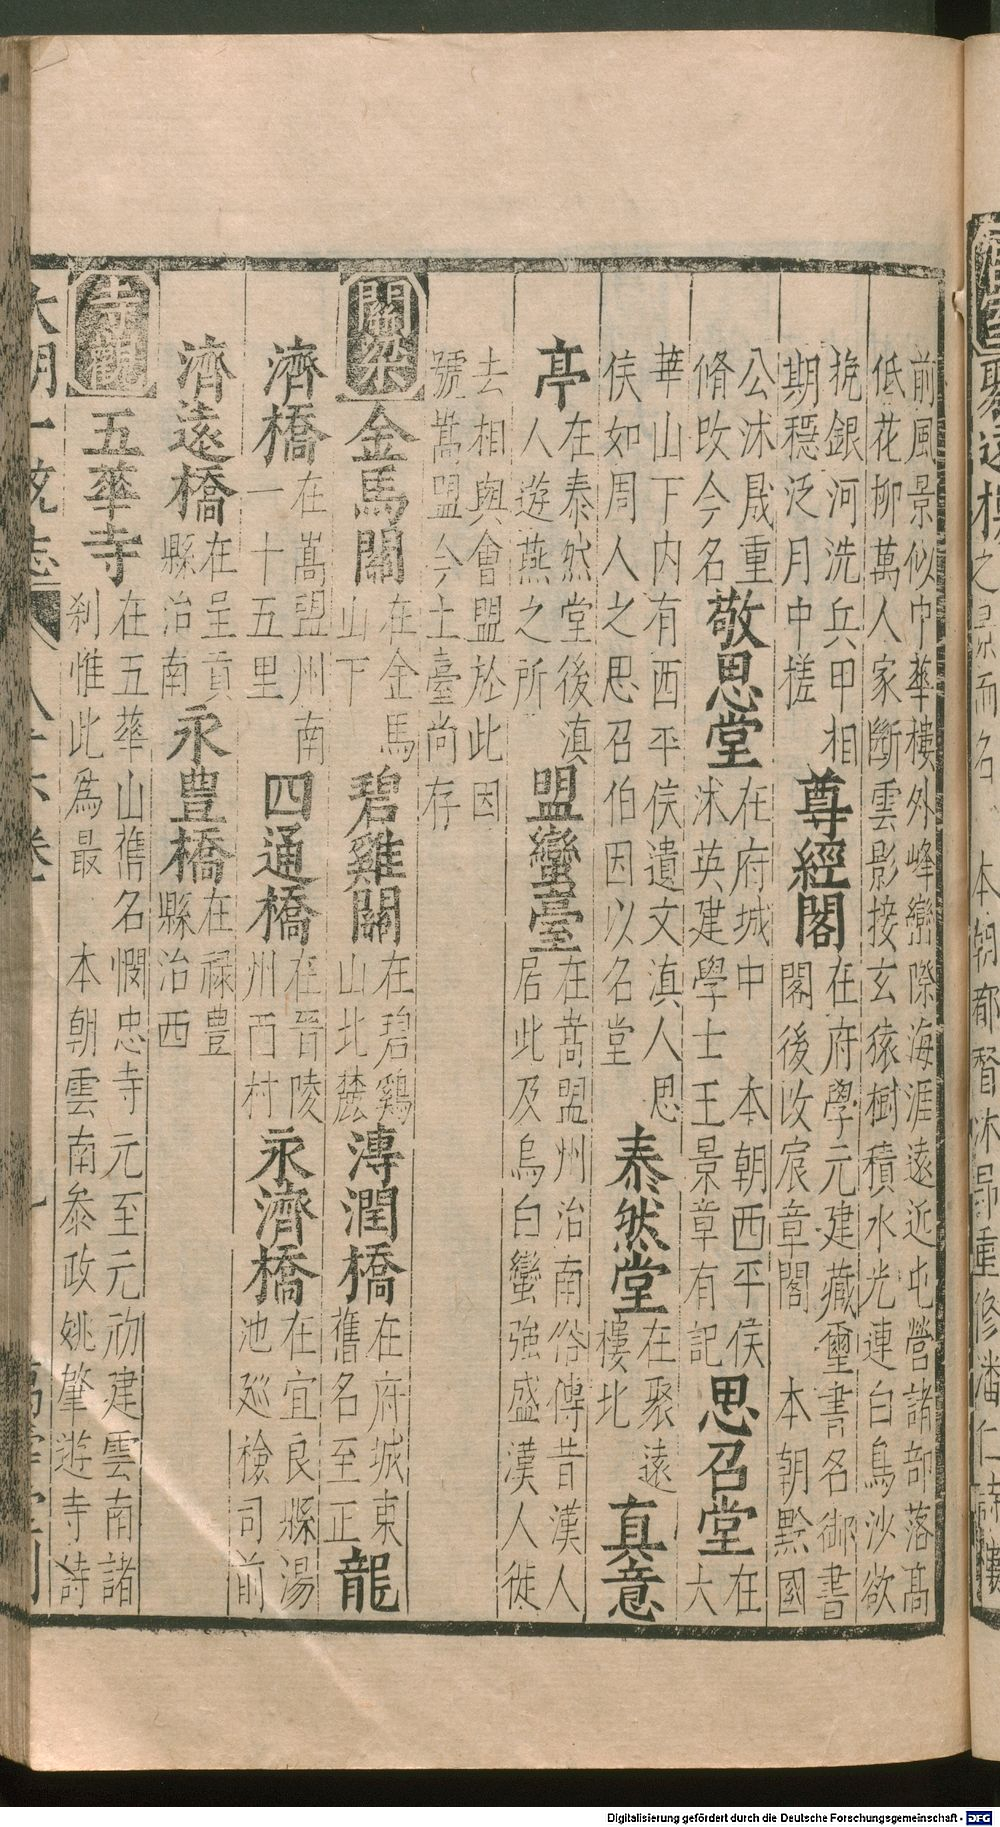 前風景似巾華樓外峰巒際海涯遠近屯營諸部落髙
低花柳萬人家斷雲影接玄猿樹積水光連白鳥沙欲
挽銀河洗兵甲相
期穩泛月中槎
尊經閣
在府學元建藏璽書名御書
閣後改宸章閣 本朝黔國
公沐晟重
脩改今名
敬思堂
在府城中 本朝西平侯
沐英建學士王景章有記
思召堂
在
大
華山下内有西平侯遺文滇人思
侯如周人之思召伯因以名堂
泰然堂
在聚遠
樓北
真意
亭
在泰然堂後滇
人遊燕之所
盟蠻臺
在嵩盟州治南俗傳昔漢人
居此及烏白蠻強盛漢人徙
去相與會盟於此因
號嵩盟今土臺尚存
關梁
金馬關
在金馬
山下
碧雞關
在碧鷄
山北麓
漙潤橋
在府城東
舊名至正
龍
濟橋
在嵩盟州南
一十五里
四通橋
在晉陵
州西村
永濟橋
在宜良縣湯
池廵檢司前
濟遠橋
在呈貢
縣治南
永豊橋
在祿豊
縣治西
寺觀
五華寺
在五華山舊名憫忠寺元至元初建雲南諸
刹惟此為最 本朝雲南參政姚肇遊寺詩
大明一統志
八十六卷
聚遠樓
之景而名 本朝都督沐昂重修潘仁
Digitalisierung gefördert durch die Deutsche Forschungsgemeinschaft - DFG